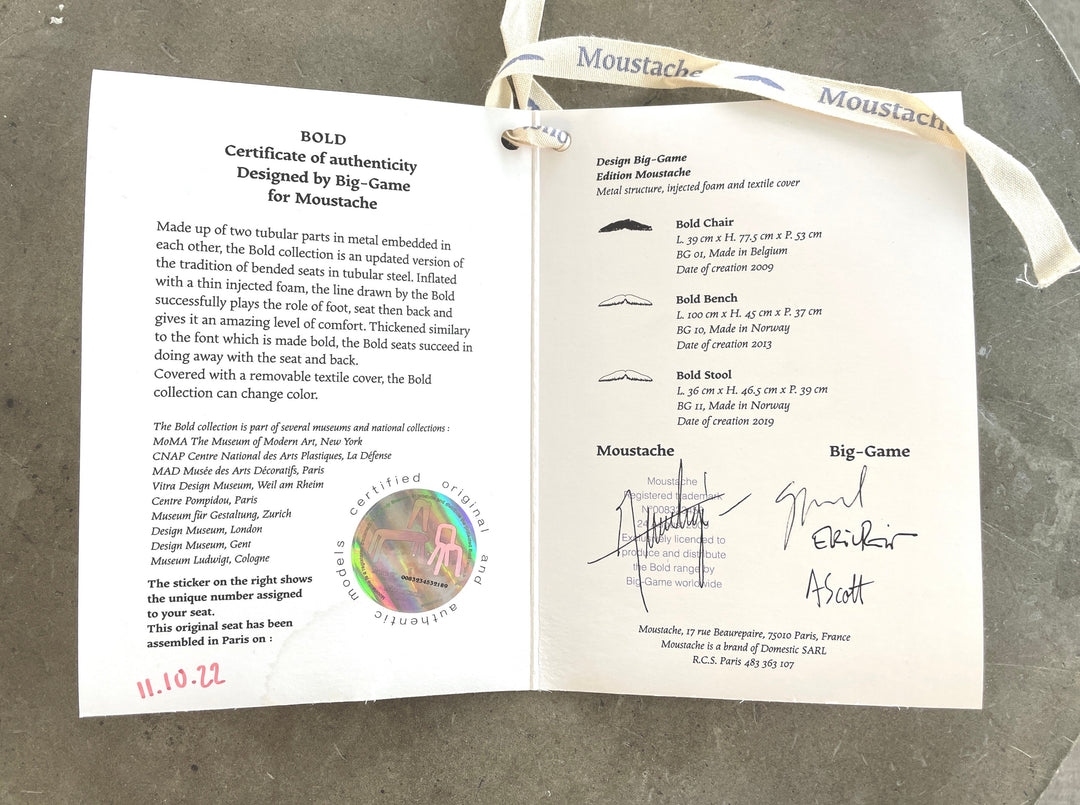 Moustache
Moustache
BOLD
Certificate of authenticity
Designed by Big-Game
for Moustache
Made up of two tubular parts in metal embedded in
each other, the Bold collection is an updated version of
the tradition of bended seats in tubular steel. Inflated
with a thin injected foam, the line drawn by the Bold
successfully plays the role of foot, seat then back and
gives it an amazing level of comfort. Thickened similary
to the font which is made bold, the Bold seats succeed in
doing away with the seat and back.
Covered with a removable textile cover, the Bold
collection can change color.
The Bold collection is part of several museums and national collections :
MoMA The Museum of Modern Art, New York
CNAP Centre National des Arts Plastiques, La Défense
MAD Musée des Arts Décoratifs, Paris
Vitra Design Museum, Weil am Rheim
Centre Pompidou, Paris
Museum für Gestaltung, Zurich
Design Museum, London
Design Museum, Gent
Museum Ludwigt, Cologne
The sticker on the right shows
the unique number assigned
to your seat.
This original seat has been
assembled in Paris on :
11.10.22
certified original and authentic models
0083234532189
Design Big-Game
Edition Moustache
Metal structure, injected foam and textile cover
Bold Chair
L. 39 cm x H. 77.5 cm x P. 53 cm
BG 01, Made in Belgium
Date of creation 2009
Bold Bench
L. 100 cm x H. 45 cm x P. 37 cm
BG 10, Made in Norway
Date of creation 2013
Bold Stool
L. 36 cm x H. 46.5 cm x P. 39 cm
BG 11, Made in Norway
Date of creation 2019
Moustache
Big-Game
Moustache
Registered trademark
Exclusively licensed to
produce and distribute
the Bold range by
Big-Game worldwide
AScott
Moustache, 17 rue Beaurepaire, 75010 Paris, France
Moustache is a brand of Domestic SARL
R.C.S. Paris 483 363 107